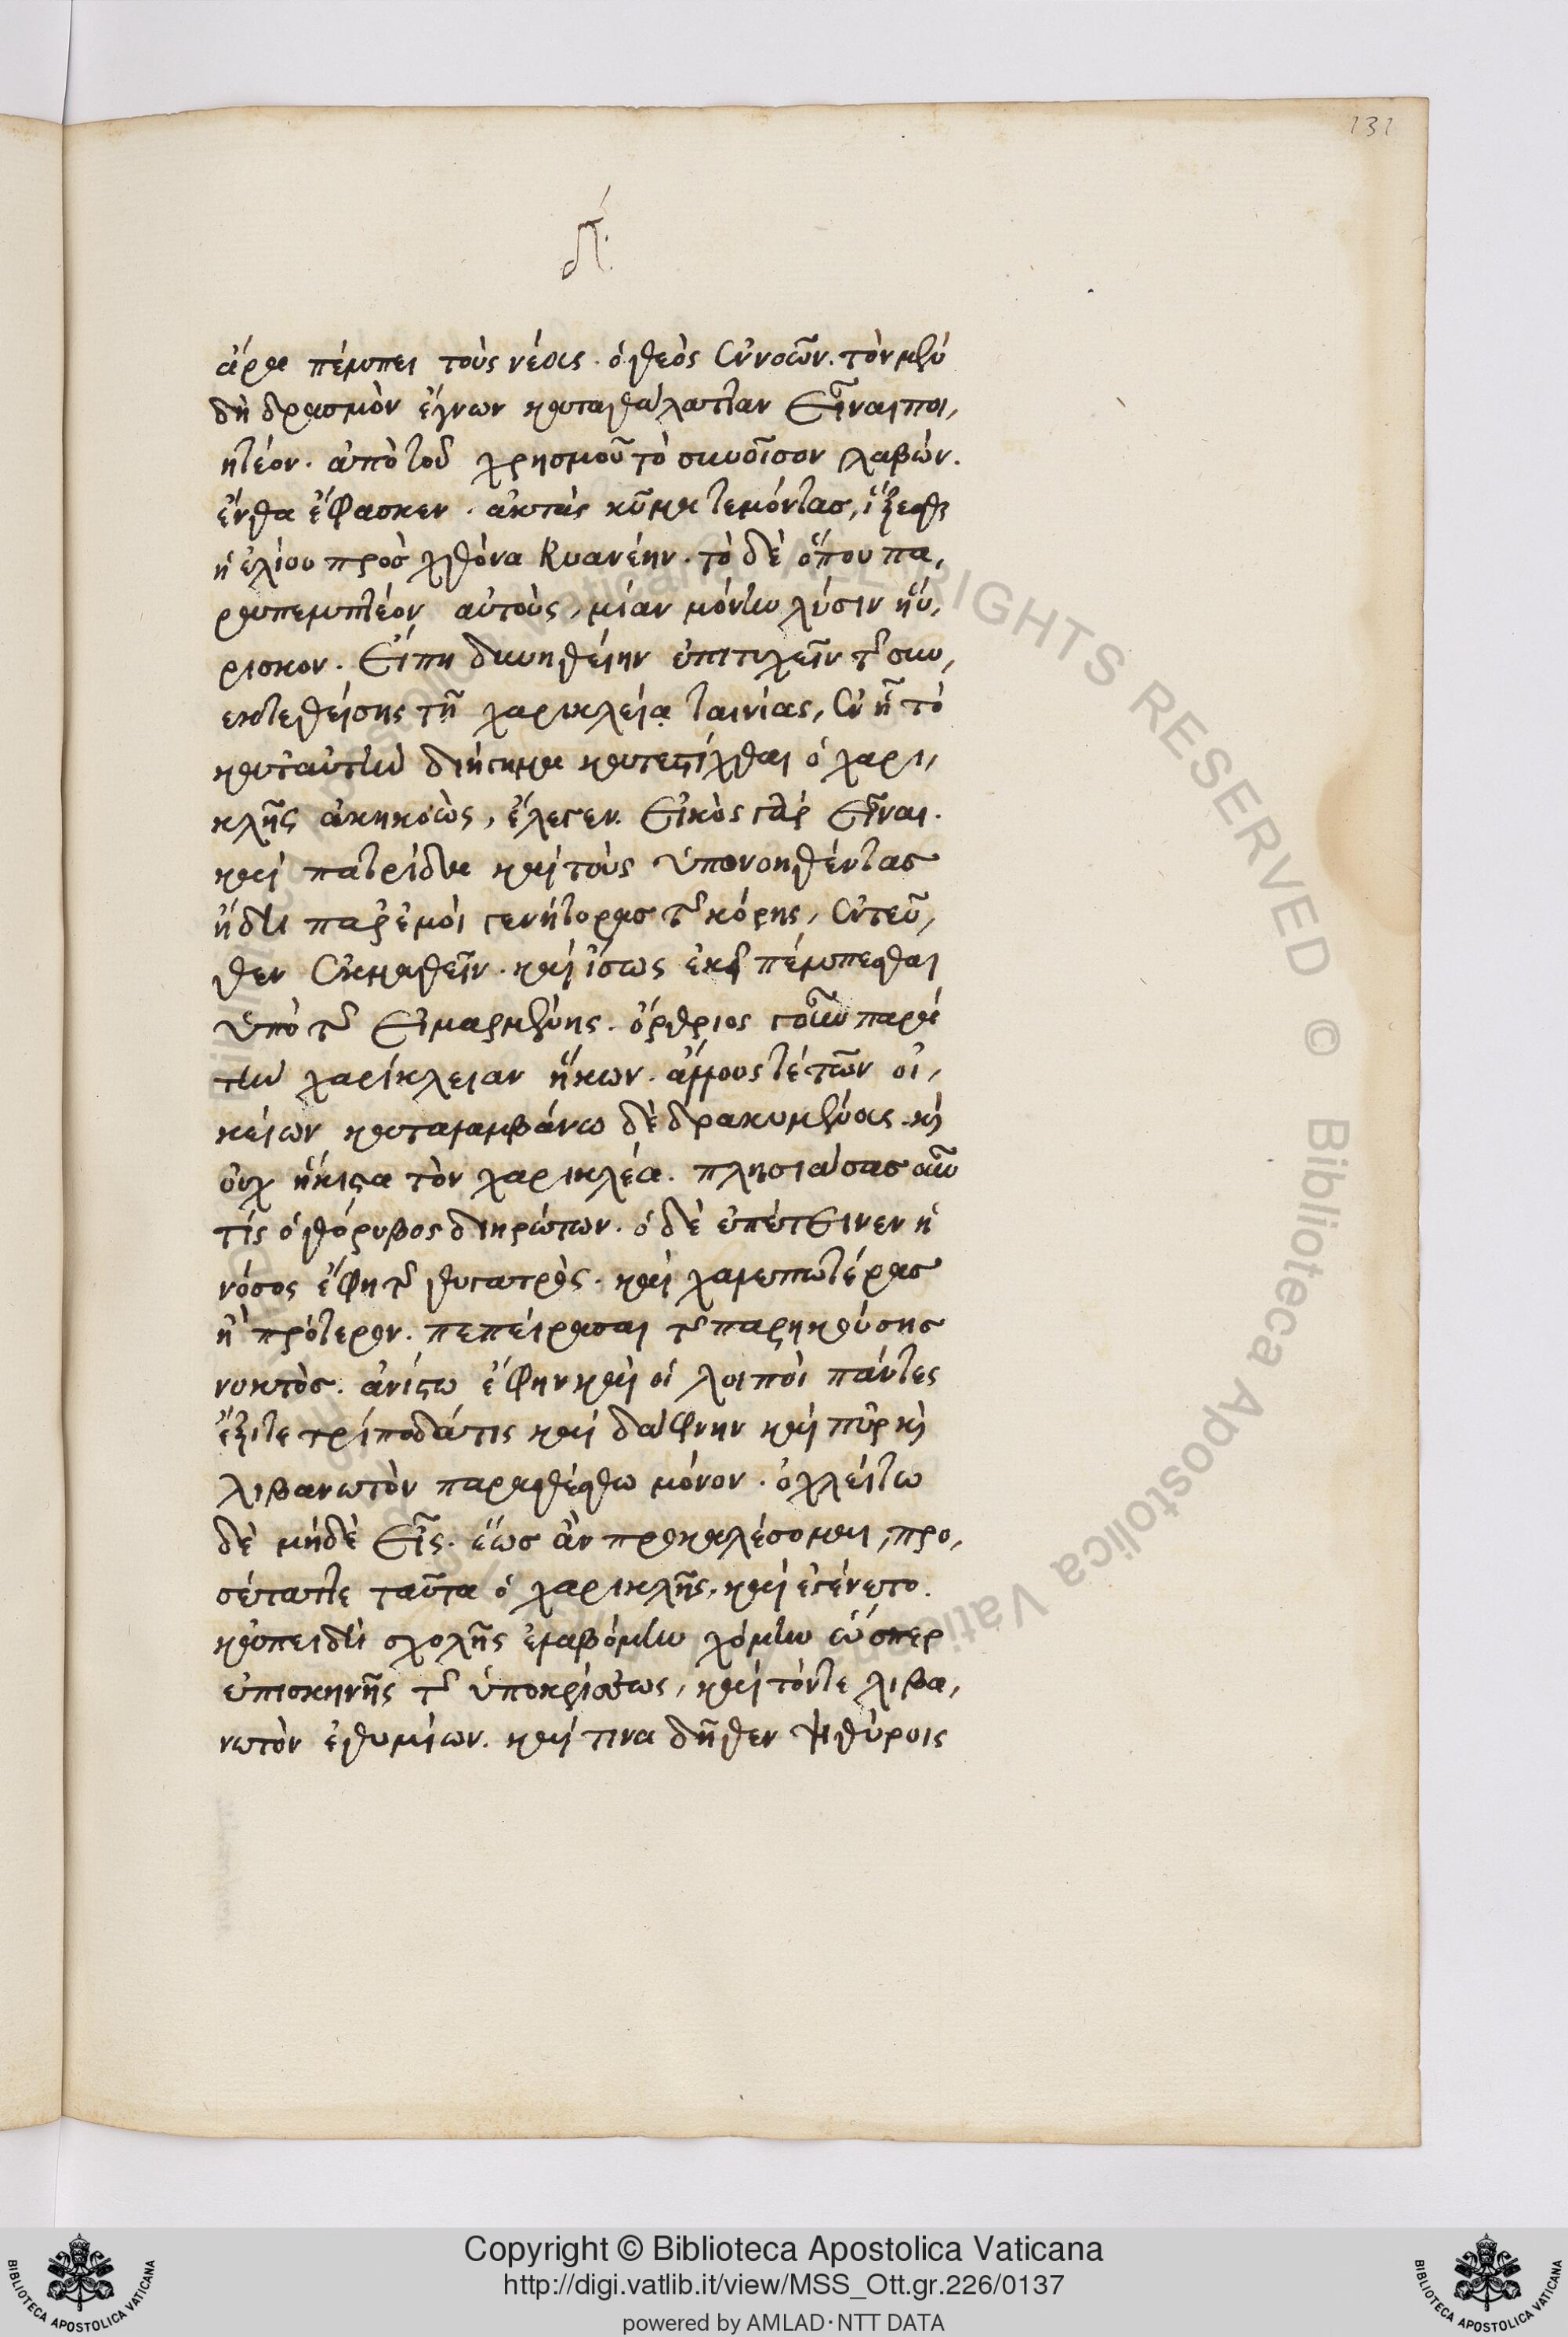 131
δ´
ἄρα πέμπει τοὺς νέους. ὁ θεὸς ἐννοῶν. τὸν μὲν
δὴ δρασμὸν ἔγνων κατὰ θάλατταν εἶναι ποι,
ητέον. ἀπὸ τοῦ χρησμοῦ τὸ συνοῖσον λαβών.
ἔνθα ἔφασκεν. αὐτὰς κῦμα τεμόντας, ἵξεσθ
ἠελίου πρὸς χθόνα κυανέην. τὸ δὲ ὅπου πα,
ραπεμπτέον αὐτοὺς, μίαν μόνην λύσιν ηὕ,
ρισκον. εἴ πη δυνηθείην ἐπιτυχεῖν τῆς συν,
εκτεθείσης τῇ χαρικλείᾳ ταινίας, ἐν ᾗ τὸ
κατ' αὐτὴν διήγημα κατεστίχθαι ὁ χαρι,
κλῆς ἀκηκοὼς, ἔλεγεν. εἰκὸς γὰρ εἶναι.
καὶ πατρίδα καὶ τοὺς ὑπονοηθέντας
ἤδη παρ' ἐμοὶ γενήτορας τῆς κόρης, ἐντεῦ,
θεν ἐκμαθεῖν. καὶ ἴσως ἐκεῖ πέμπεσθαι
ὑπὸ τῆς εἱμαρμένης. ὄρθριος γοῦν παρὰ
τὴν χαρίκλειαν ἥκων. ἄλλους τὲ τῶν οἰ,
κείων καταλαμβάνω δεδρακυμένους. καὶ
οὐχ ἥκιστα τὸν χαρικλέα. πλησιάσας οὖν
τίς ὁ θόρυβος διηρώτων. ὁ δὲ ἐπέτεινεν ἡ
νόσος ἔφη τῆς θυγατρὸς. καὶ χαλεπωτέρας
ἢ πρότερον. πεπείραται τῆς παρηκούσης
νυκτὸς. ἀνίστω ἔφην καὶ οἱ λοιποὶ πάντες
ἔξιτε τρίποδά τις καὶ δάφνην καὶ πῦρ καὶ
λιβανωτὸν παραθέσθω μόνον. ὀχλείτω
δὲ μὴδὲ εἷς. ἕως ἂν προκαλέσομαι, προ,
σέταττε ταῦτα ὁ χαρικλῆς, καὶ ἐγένετο.
κἀπειδὴ σχολῆς ἐλαβόμην χόμην ὥσπερ
ἐπισκηνῆς τῆς ὑποκρίσεως, καὶ τόντε λιβα,
νωτὸν ἐθυμίων. καί τινα δῆθεν ψιθύροις
Copyright © Biblioteca Apostolica Vaticana
http://digi.vatlib.it/view/MSS_Ott.gr.226/0137
powered by AMLAD·NTT DATA